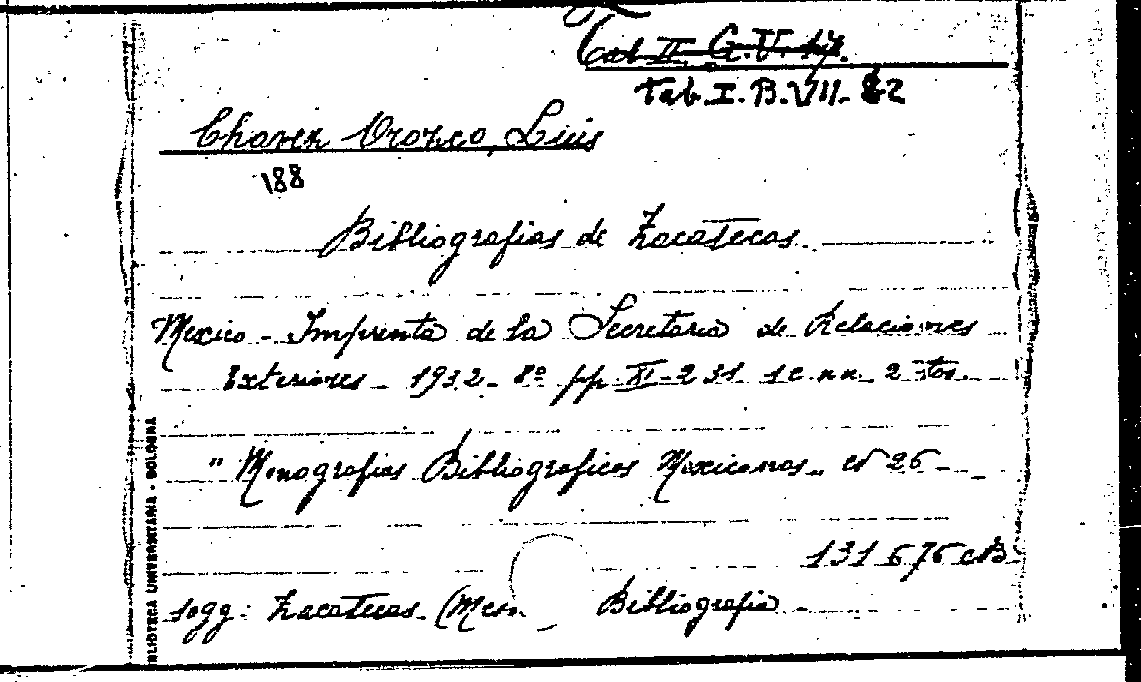 Tab. II. G. V. 17.
Tab. I. B. VII. 82
Chavez Orozco, Luis
188
Bibliografias de Zacatecas.
Mexico - Imprenta de la Secretaria de Relaciones
Exteriores - 1932 - 8º pp XI-231. 1 c. nn.
"Monografias Bibliograficas Mexicanas" 26
131676
sogg: Zacatecas. (Mess Bibliografia
BIBLIOTECA UNIVERSITARIA - BOLOGNA